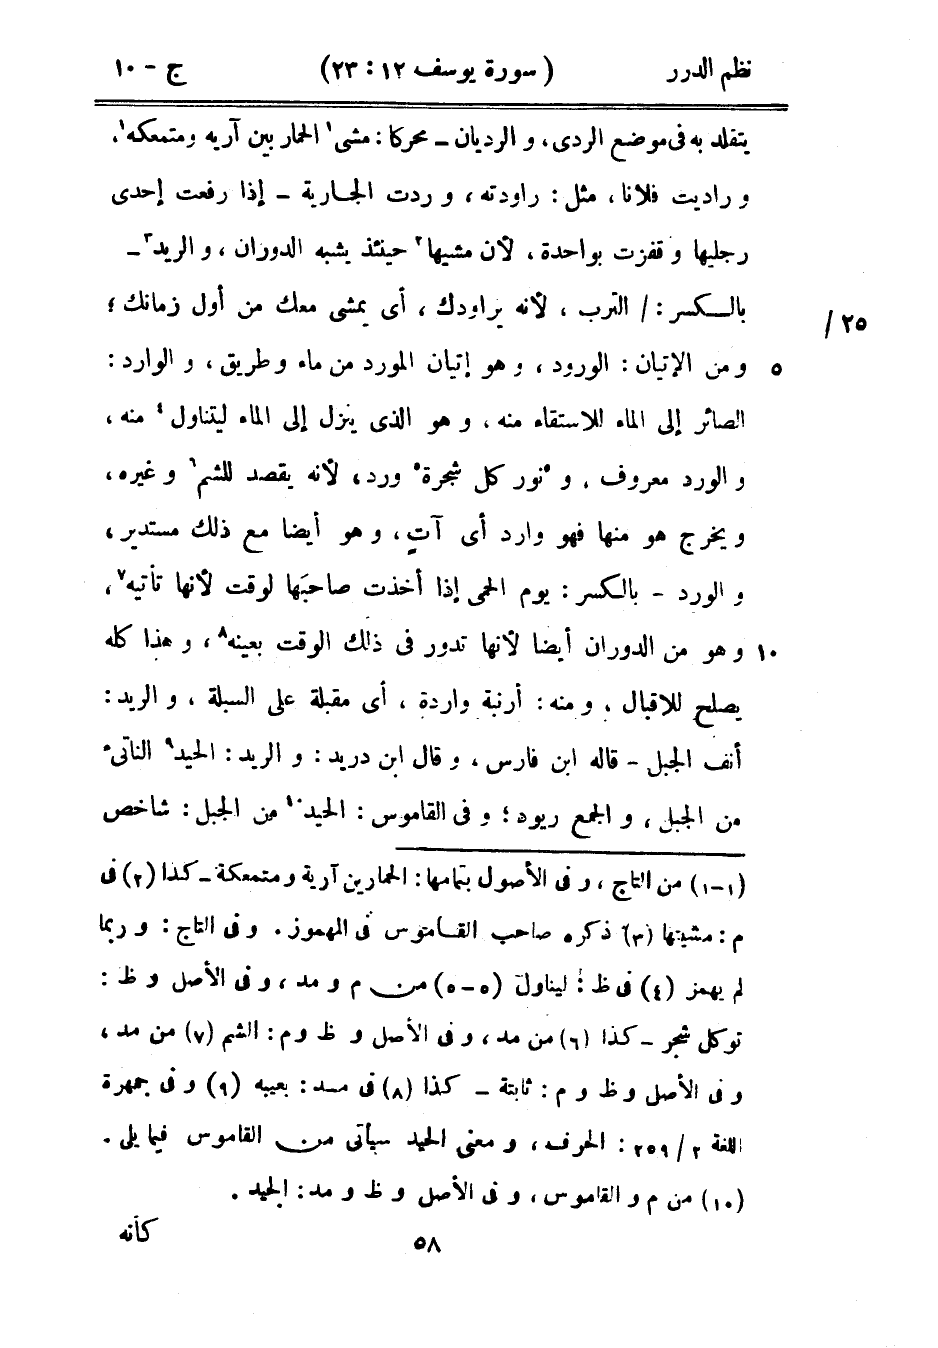 نظم الدرر ( سورة يوسف ١٢ : ٢٣ ) ج - ١٠
يتقلد به فى موضع الردى ، و الرديان - محركا : مشى ١ الحمار بين آريه ومتمعكه ١ .
و راديت فلانا ، مثل : راودته ، و ردت الجارية - إذا رفعت إحدى
رجليها و قفزت بواحدة ، لأن مشيها ٢ حينئذ يشبه الدوران ، و الريد ٣ -
بالكسر : / الترب ، لأنه يراودك ، أى يمشى معك من أول زمانك ؛ / ٢٥
و من الإتيان : الورود ، و هو إتيان المورد من ماء و طريق ، و الوارد : ٥
الصائر إلى الماء للاستقاء منه ، و هو الذى ينزل إلى الماء ليتناول ٤ منه ،
و الورد معروف ، و ٥ نور كل شجرة ٥ ورد ، لأنه يقصد للشم ٦ و غيره ،
و يخرج هو منها فهو وارد أى آتٍ ، و هو أيضا مع ذلك مستدير ،
و الورد - بالكسر : يوم الحمى إذا أخذت صاحبَها لوقت لأنها تأتيه ٧ ،
و هو من الدوران أيضا لأنها تدور فى ذلك الوقت بعينه ٨ ، و هذا كله ١٠
يصلح للاقبال ، و منه : أرنبة واردة ، أى مقبلة على السبلة ، و الريد :
أنف الجبل - قاله ابن فارس ، و قال ابن دريد : و الريد : الحيد ٩ الناتىء
من الجبل ، و الجمع ريود ؛ و فى القاموس : الحيد ١٠ من الجبل : شاخص
(١-١) من التاج ، و فى الأصول بتمامها : الحمارين آرية و متمعكة - كذا (٢) فى
م : مشيتها (٣) ذكره صاحب القاموس فى المهموز . و فى التاج : و ربما
لم يهمز (٤) فى ظ : ليناول (٥-٥) من م و مد ، و فى الأصل و ظ :
توكل شجر - كذا (٦) من مد ، و فى الأصل و ظ و م : الشم (٧) من مد ،
و فى الأصل و ظ و م : ثابتة - كذا (٨) فى مد : بعيبه (٩) و فى جمهرة
اللغة ٢ / ٢٥٩ : الحرف ، و معنى الحيد سيأتى من القاموس فيما يلى .
(١٠) من م و القاموس ، و فى الأصل و ظ و مد : الجيد .
٥٨ كأنه